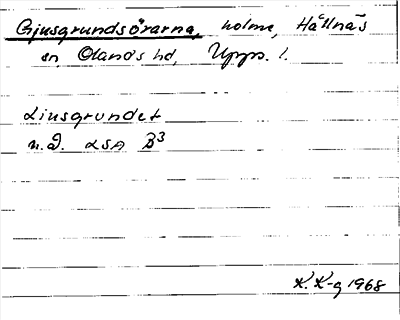 Gjusgrundsörarna, holme, Hållnäs
sn, Olands hd, Upps. l.
Liusgrundet
n.d. LSA B3
K. K-g 1968